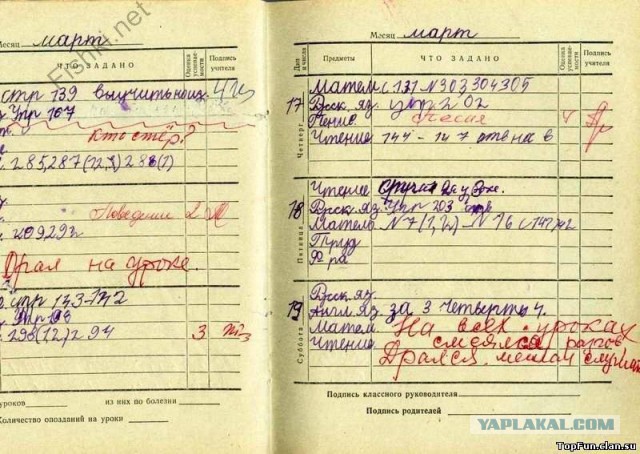 Месяц март
ЧТО ЗАДАНО
Оценка успеваемости
Подпись учителя
стр 139 выучить наиз. 4
Упр 167
кто стёр?
285,287(12,3) 288(1)
Поведение 2
209292
Орал на уроке.
стр 143-142
Упр 198
298(12) 294 3
уроков из них по болезни
Количество опозданий на уроки
Месяц март
Дата и число
Предметы
ЧТО ЗАДАНО
Оценка успеваемости
Подпись учителя
17
Четверг
Матем с 131 N 303 304305
Русск яз. упр 202
Пение Песня 4
Чтение 144-147 отв на в
18
Пятница
Чтение
Русск яз. Упр 203
Матем N7(1,2) - N16 с 142
Труд
Ф ра
19
Суббота
Русск яз.
Англ яз. за 3 четверть 4.
Матем На всех уроках
Чтение смеялся
Дрался. мешал
Подпись классного руководителя
Подпись родителей
Fishki.net
YAPLAKAL.COM
TopFun.clan.su